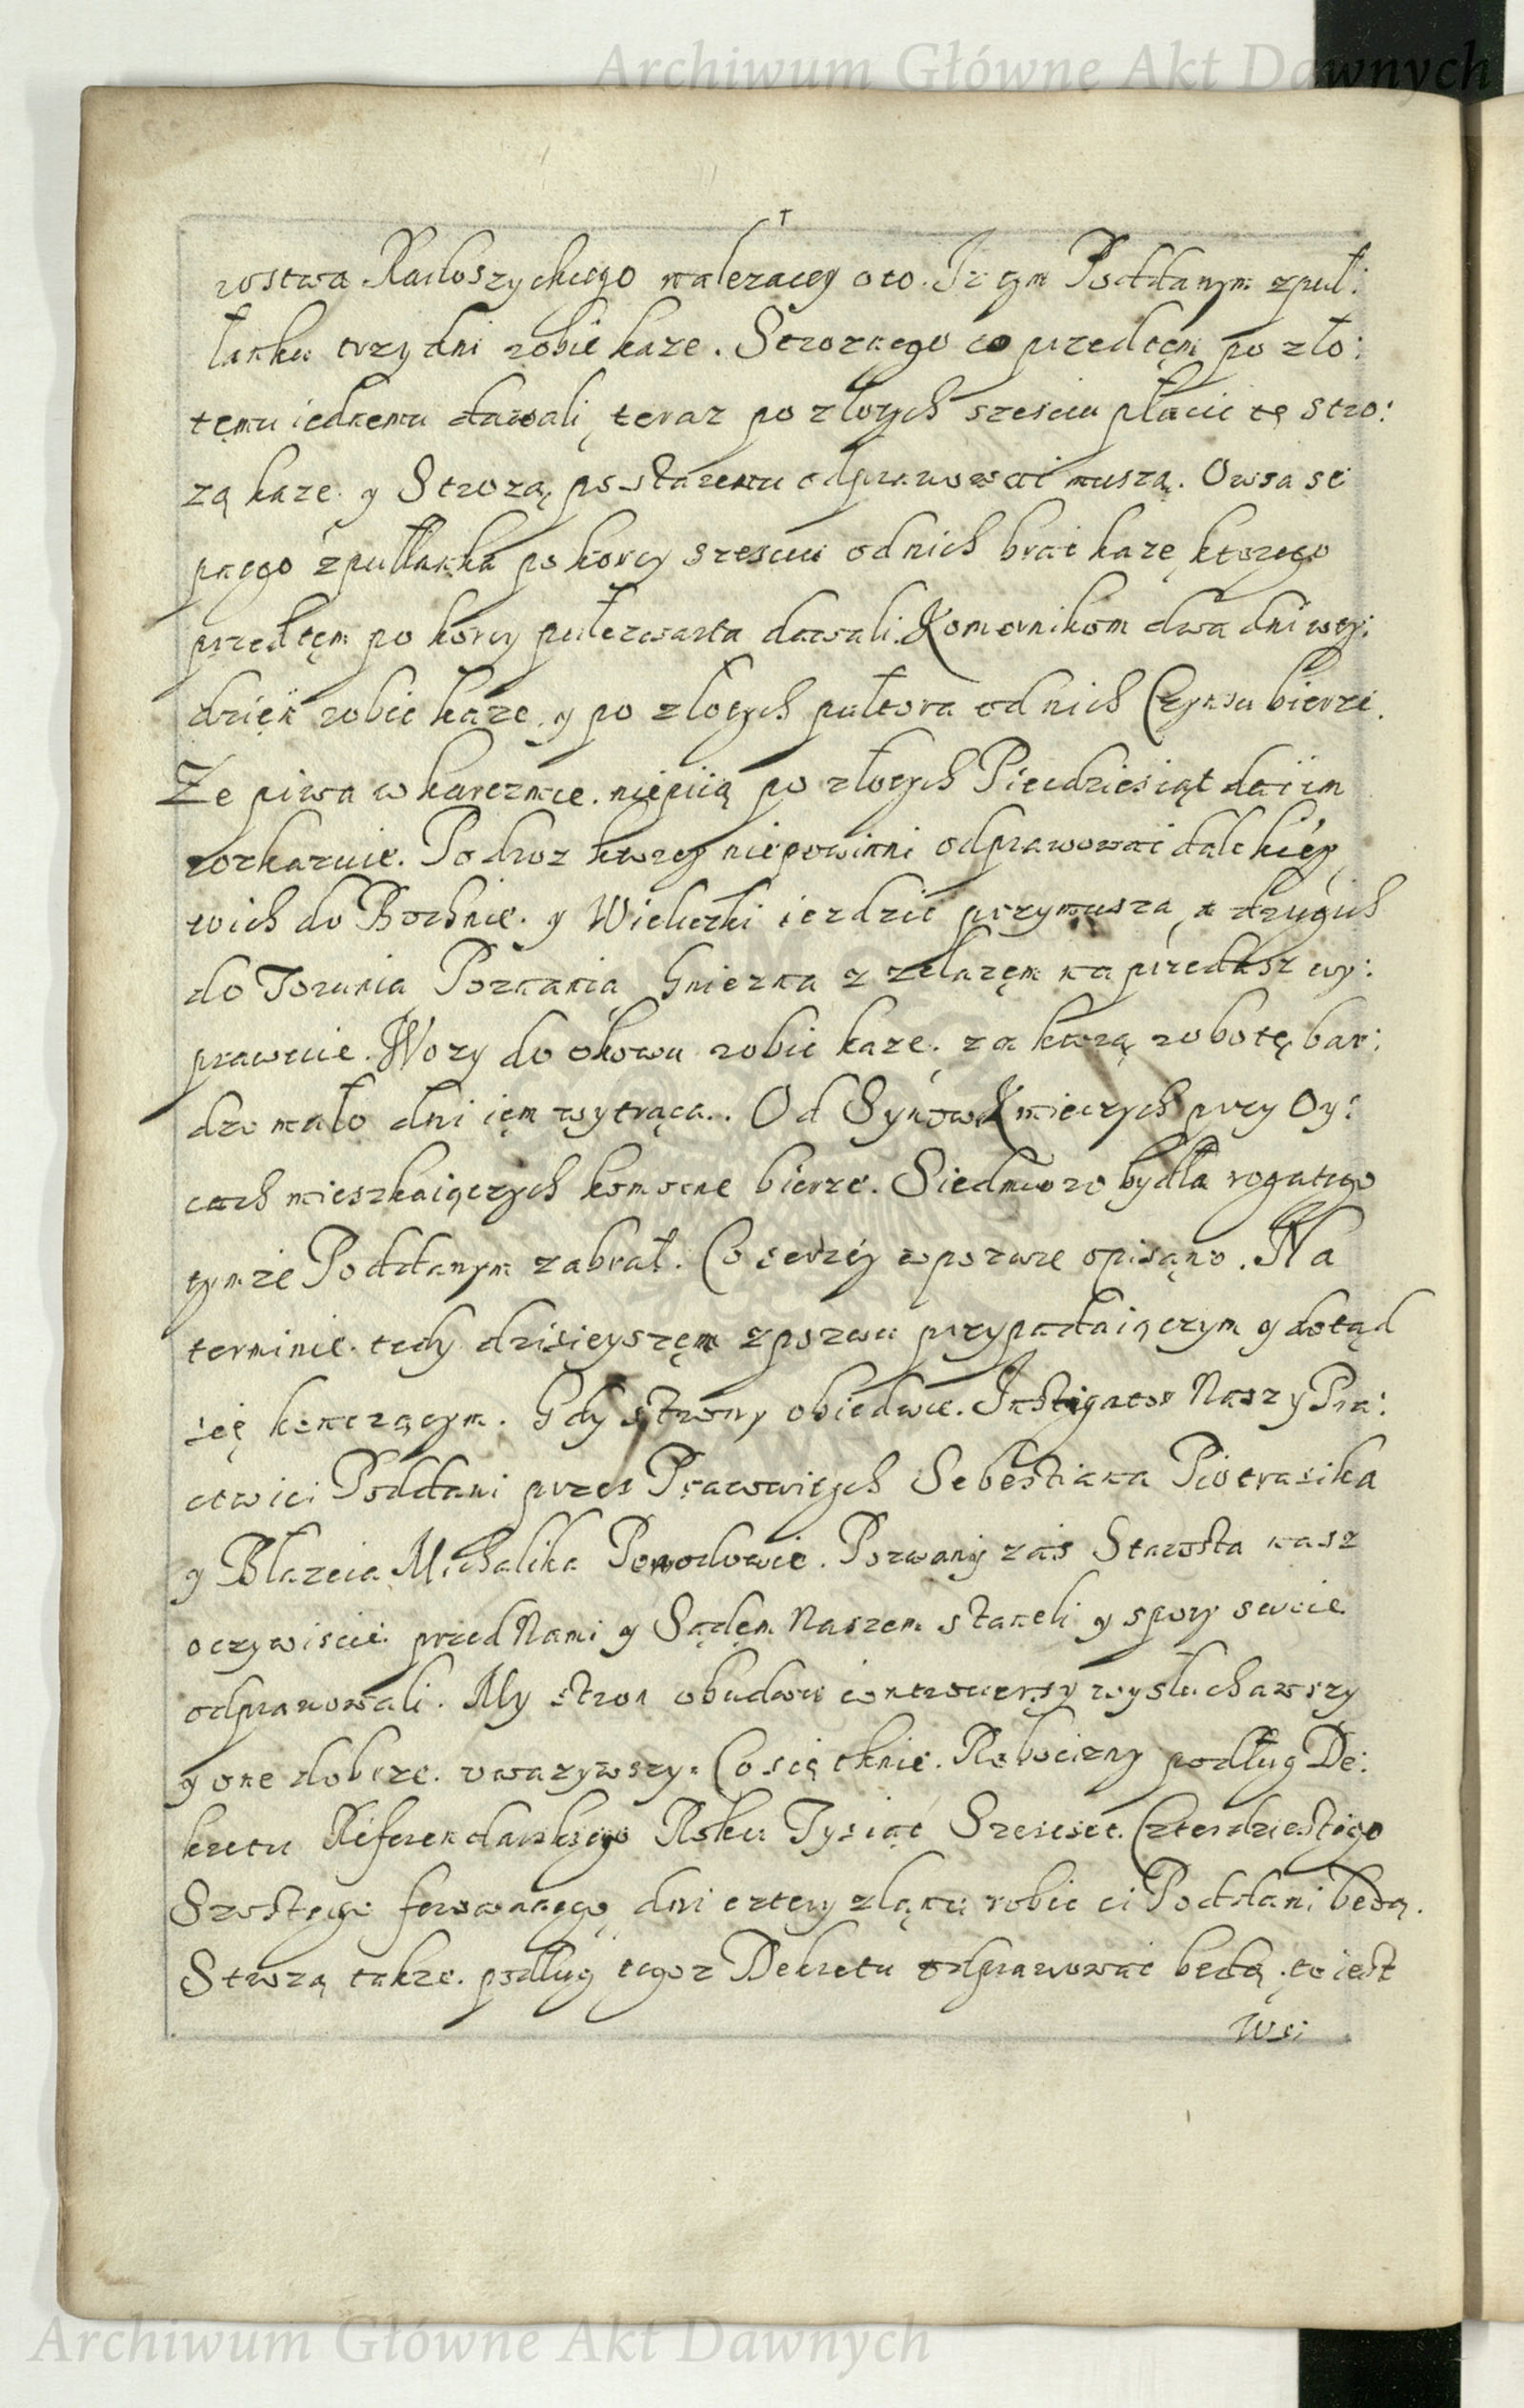 Archiwum Główne Akt Dawnych
rostwa Radoszyckiego nalezacey oto. Iz tym Poddanym zpuł:
łanku trzy dni robic kaze. Stroznego co przedtęm po zło:
tęmu iednemu dawali, teraz po złotych szesciu płacic tę stro:
zą kaze. y Strozą, postaremu odprawowac muszą. Owsa se
pnego zpułłanka po korcy szesciu odnich brac kaze, ktorego
przedtęm po korcy pułczwarta dawali. Komornikom dwa dni wty:
dzięn robic kaze. y po złotych pułtora od nich Czynsu bierze.
Ze piwa w karczmie. niepiią po złotych Piecdziesiąt dac im
rozkazuie. Podroz ktorey niepowinni odprawowac dalekiey,
wich do Bochnie. y Wieliczki iezdzic przymusza, a drugich
do Torunia Poznania Gniezna z zelazęm na przedasz wy:
prawuie. Wozy do okowu robic kaze. za ktorą robotę bar:
dzo mało dni ięm wytrąca.. Od Synow Kmiecych przy Oy:
cach mieszkaiących komorne bierze. Siedmioro bydła rogatego
tymze Poddanym zabrał. Co szerzey wpozwie opisąno. Na
terminie. tedy dzisieyszęm zpozwu przypadaiączym y dotąd
się konczączym. Gdy strony obiedwie. Instigator Nasz y Pra:
cowici Poddani przez Pracowitych Sebestiana Piotrasika
y Błazeia Michalika Powodowie. Pozwany zas Starosta nasz
oczywiscie. przed Nami y Sądęm Naszem staneli y spory swoie
odprawowali. My stron obudwu controuersy wysłuchawszy
y one dobrze. vwazywszy. Co się tknie. Robocizny podług De:
kretu Referendarskiego Roku Tysiąc Szescset. Czterdziestego
Szostego ferowanego, dni cztery złąnu robic ci Poddani bedą.
Strozą takze. podług tegoz Dekretu odprawowac bedą. to iest
Wsi
Archiwum Główne Akt Dawnych